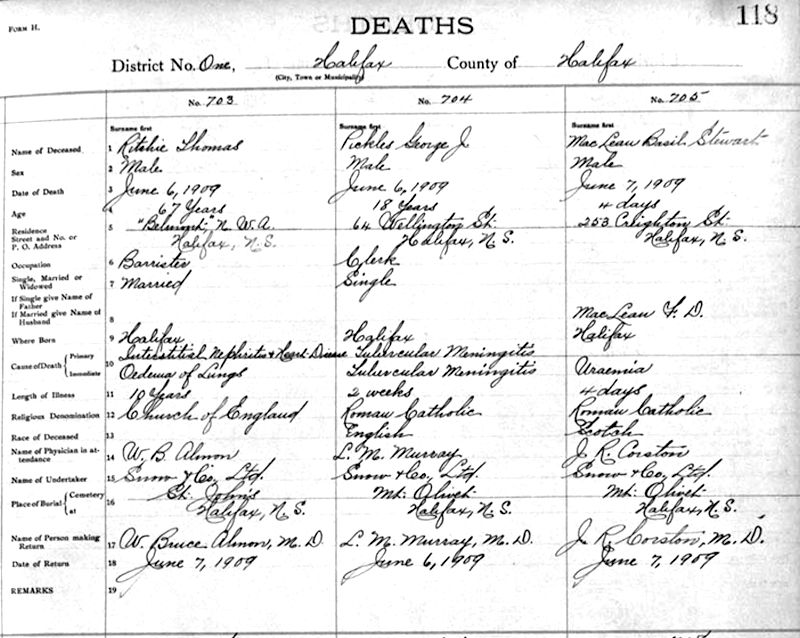 FORM H.
DEATHS
118
District No. One, Halifax County of Halifax
(City, Town or Municipality)
No. 703 No. 704 No. 705
Surname first Surname first Surname first
Name of Deceased 1 Ritchie Thomas Pickles George J MacLean Basil Stewart
Sex 2 Male Male Male
Date of Death 3 June 6, 1909 June 6, 1909 June 7, 1909
Age 4 67 Years 18 Years 4 days
Residence 5 "Belmont," N. W. A. 64 Wellington St. 253 Creighton St.
Street and No. or Halifax, N.S. Halifax, N.S. Halifax, N.S.
P. O. Address
Occupation 6 Barrister Clerk
Single, Married or Widowed 7 Married Single
If Single give Name of Father
If Married give Name of Husband 8 MacLean F. D.
Where Born 9 Halifax Halifax Halifax
Cause of Death Primary Interstitial Nephritis & Heart Disease Tubercular Meningitis
Immediate 10 Oedema of Lungs Tubercular Meningitis Uraemia
Length of Illness 11 10 Years 2 weeks 4 days
Religious Denomination 12 Church of England Roman Catholic Roman Catholic
Race of Deceased 13 English Scotch
Name of Physician in attendance 14 W. B. Almon L. M. Murray J. R. Corston
Name of Undertaker 15 Snow & Co., Ltd. Snow & Co., Ltd. Snow & Co., Ltd.
Place of Burial Cemetery 16 St. John's Mt. Olivet Mt. Olivet
at Halifax, N.S. Halifax, N.S. Halifax, N.S.
Name of Person making Return 17 W. Bruce Almon, M.D. L. M. Murray, M.D. J. R. Corston, M.D.
Date of Return 18 June 7, 1909 June 6, 1909 June 7, 1909
REMARKS 19